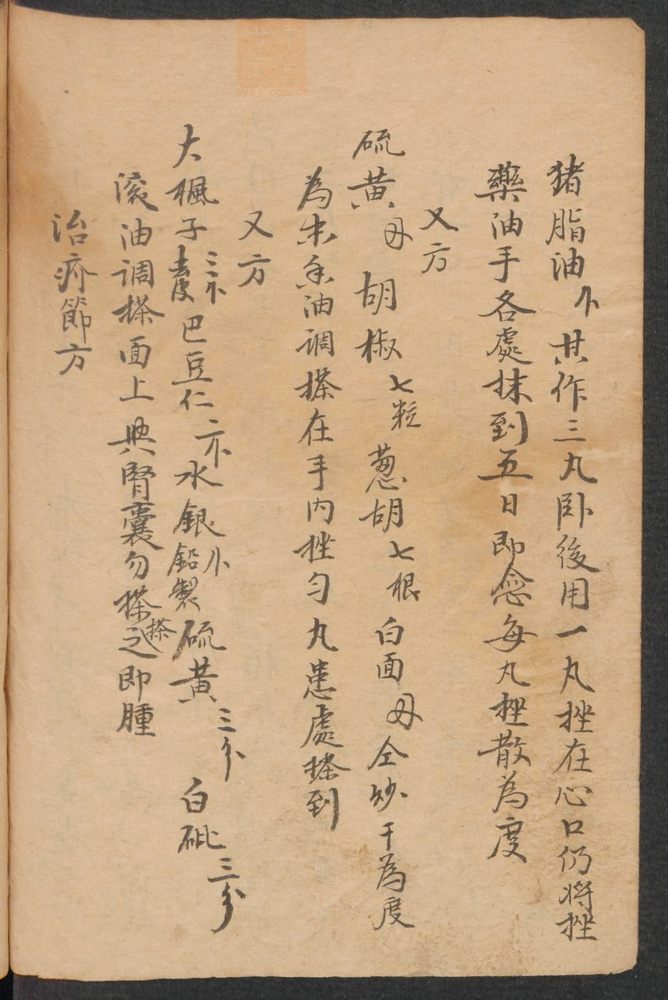 猪脂油 共作三丸卧後用一丸挫在心口仍将挫
藥油手各處抹到五日即愈每丸挫散為度
又方
硫黄 胡椒七粒 葱胡七根 白面 仝炒干為度
為末香油調搽在手内挫匀凡患處搽到
又方
大楓子三 去皮 巴豆仁 水銀 鉛製 硫黄三分 白砒三分
滚油調搽面上與腎囊勿搽搽之即腫
治疥節方